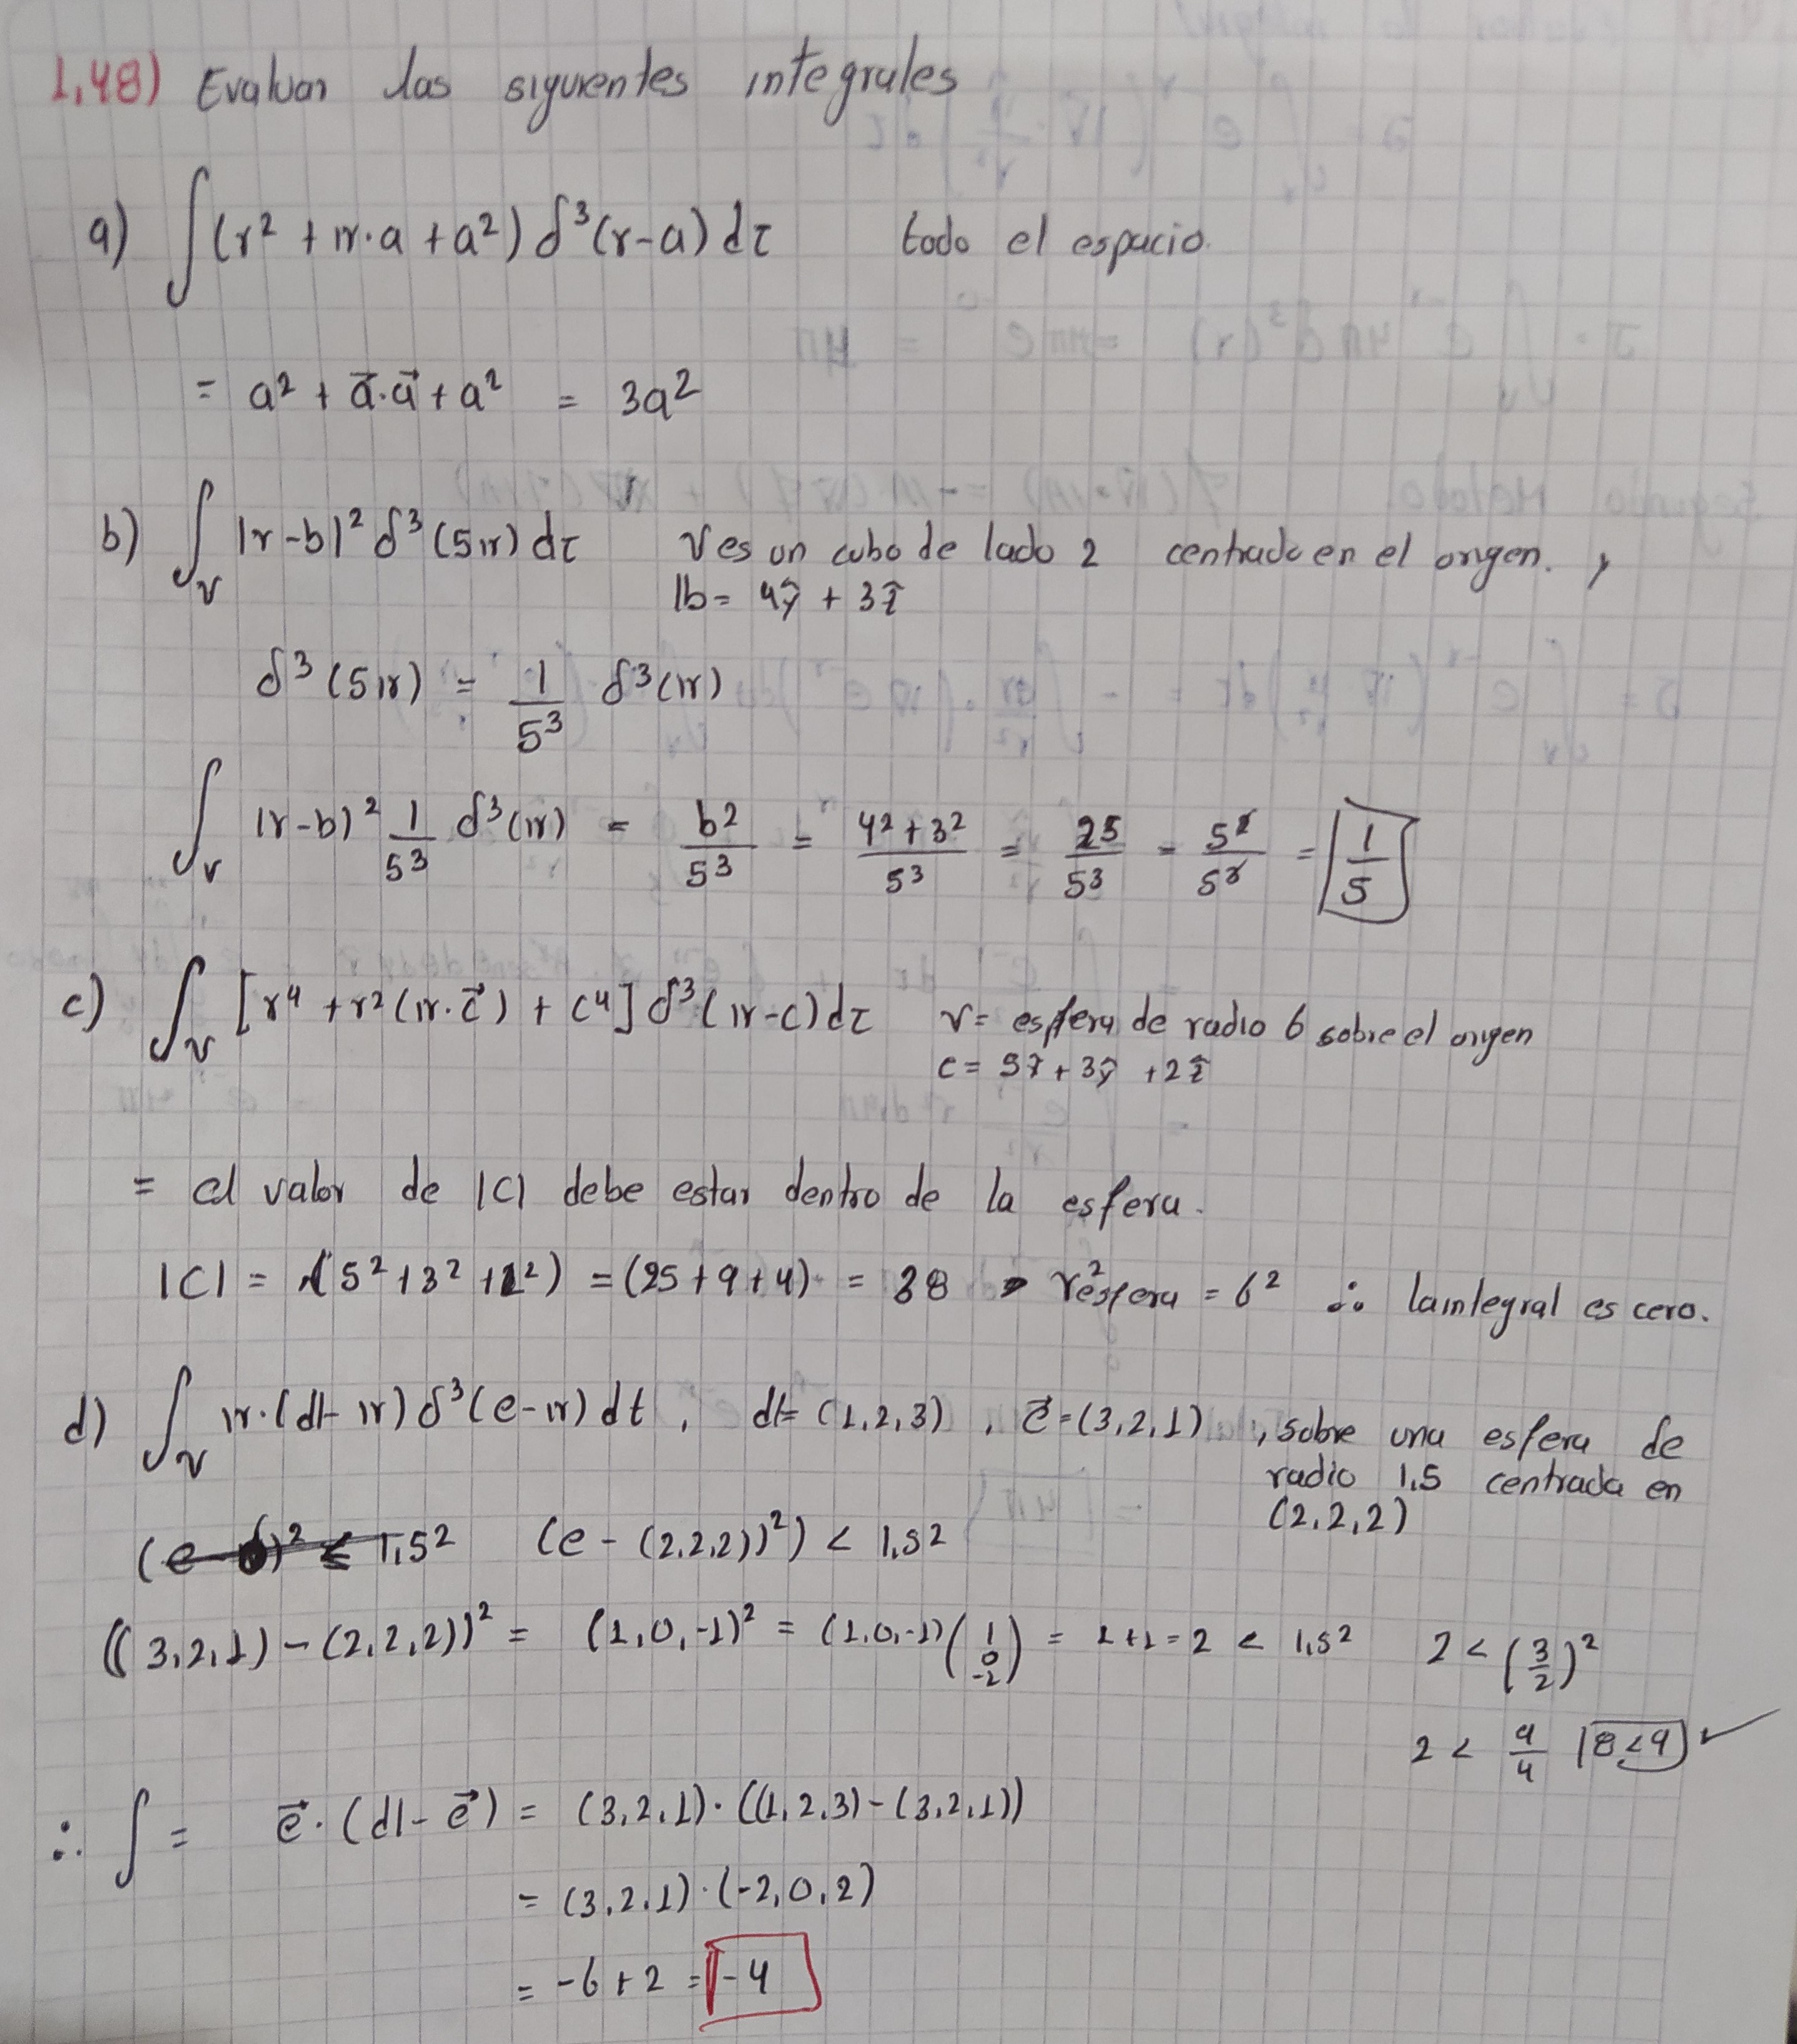 1,48) Evaluar las siguientes integrales
a) ∫(r² + 𝕣·a + a²) δ³(r-a) dτ todo el espacio.
= a² + a⃗·a⃗ + a² = 3a²
b) ∫_v |r-b|² δ³(5𝕣) dτ V es un cubo de lado 2 centrado en el origen. y
𝕓= 4ŷ + 3ẑ
δ³(5𝕣) = 1/5³ δ³(𝕣)
∫_v |r-b|² 1/5³ δ³(𝕣) = b²/5³ = (4²+3²)/5³ = 25/5³ = 5²/5³ = 1/5
c) ∫_v [r⁴ + r²(𝕣·c⃗) + c⁴] δ³(𝕣-c) dτ v= esfera de radio 6 sobre el origen
c = 5x̂ + 3ŷ + 2ẑ
= el valor de |C| debe estar dentro de la esfera.
|C| = √(5² + 3² + 2²) = (25+9+4) = 38 > r²esfera = 6² ∴ la integral es cero.
d) ∫_v 𝕣·(𝕕-𝕣) δ³(e-𝕣) dt, 𝕕= (1,2,3), e⃗=(3,2,1), sobre una esfera de
radio 1.5 centrada en
(2,2,2)
(e - (2,2,2))²) < 1,5²
((3,2,1)-(2,2,2))² = (1,0,-1)² = (1,0,-1)(1 0 -1) = 1+1=2 < 1,5² 2 < (3/2)²
2 < 9/4 8<9 ✓
∴ ∫ = e⃗·(𝕕-e⃗) = (3,2,1)·((1,2,3)-(3,2,1))
= (3,2,1)·(-2,0,2)
= -6+2 = -4